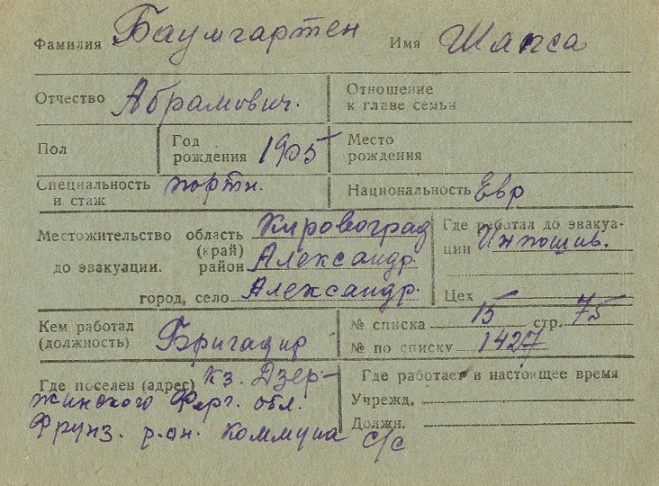 Фамилия Баумгартен Имя Шапса
Отчество Абрамович. Отношение к главе семьи
Пол Год рождения 1905 Место рождения
Специальность и стаж портн. Национальность Евр
Местожительство до эвакуации. область (край) Кировоград
район Александр.
город, село Александр.
Где работал до эвакуации Инпошив.
Цех
Кем работал (должность) Бригадир
№ списка 15 стр. 75
№ по списку 1427
Где поселен (адрес) кз. Дзер-
жинского Ферг. обл.
Фрунз. р-он. Коммуна с/с
Где работает в настоящее время
Учрежд.
Должн.